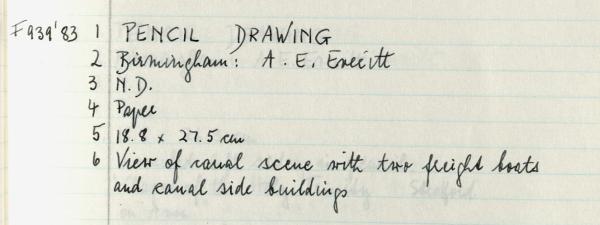 F939'83 1 PENCIL DRAWING
2 Birmingham: A. E. Everitt
3 N.D.
4 Paper
5 18.8 x 27.5 cm
6 View of canal scene with two freight boats
and canal side buildings